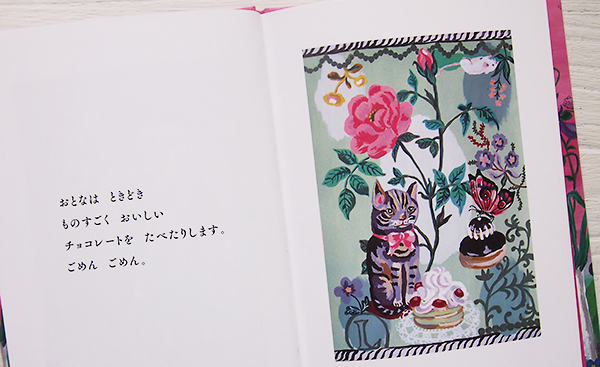 おとなは ときどき
ものすごく おいしい
チョコレートを たべたりします。
ごめん ごめん。
L